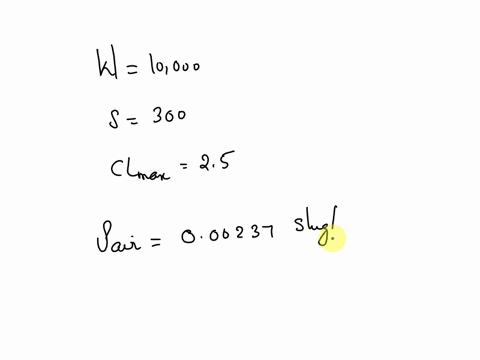 W = 10,000
S = 300
CLmax = 2.5
ρair = 0.00237 slug/